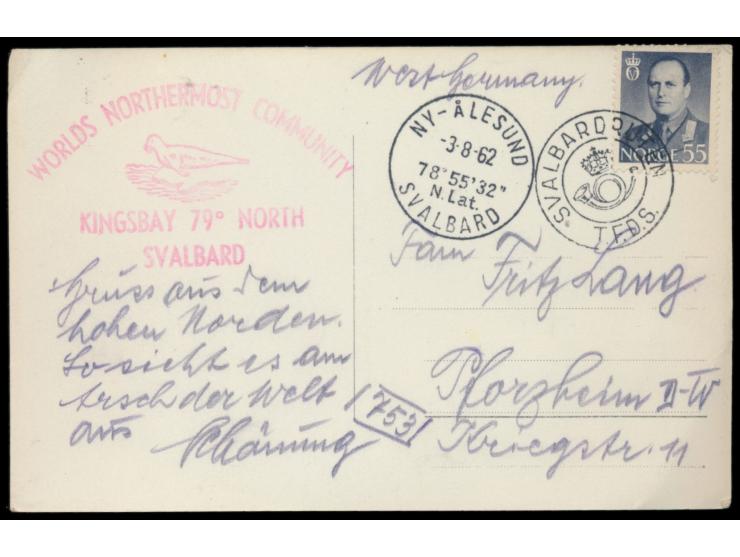 WORLDS NORTHERMOST COMMUNITY
KINGSBAY 79° NORTH
SVALBARD
Gruss aus dem
hohen Norden.
So sieht es am
Arsch der Welt
aus
West Germany.
NY-ÅLESUND
-3-8-62
78°55'32"
N.Lat.
SVALBARD
SVALBARDRUTEN
T.F.D.S.
55
NORGE 55
Fam
Fritz Lang
Pforzheim II-W
Kriegstr. 11
753